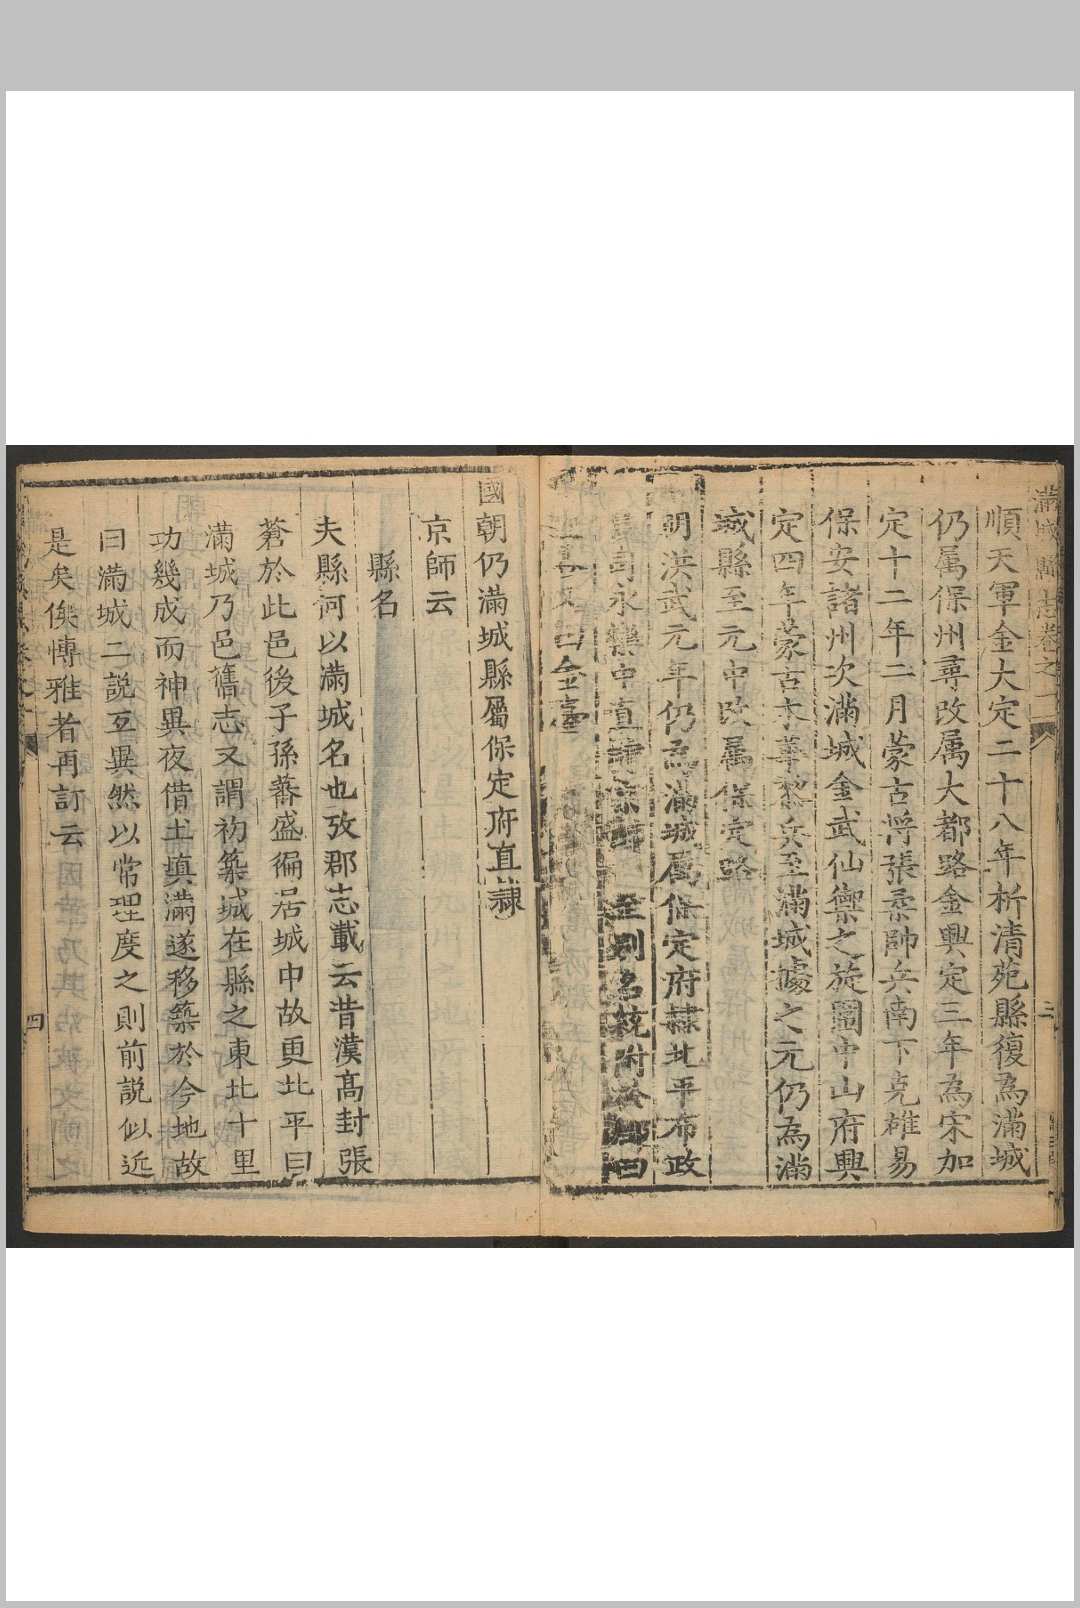 滿城縣志卷之一
順天軍金大定二十八年析清苑縣復為滿城
仍属保州尋改属大都路金興定三年為宋加
定十二年二月蒙古將張柔帥兵南下克雄易
保安諸州次滿城金武仙禦之旋圖中山府興
定四年蒙古木華黎兵至滿城據之元仍為滿
城縣至元中改属保定路
明洪武元年仍為滿城属保定府隷北平布政
司永樂中直隷京師 至別名統附於
曰金臺
國朝仍滿城縣屬保定府直隷
京師云
縣名
夫縣何以滿城名也攷郡志載云昔漢高封張
蒼於此邑後子孫蕃盛徧居城中故更北平曰
滿城乃邑舊志又謂初築城在縣之東北十里
功幾成而神異夜借土填滿遂移築於今地故
曰滿城二說互異然以常理度之則前說似近
是矣俟慱雅者再訂云
四